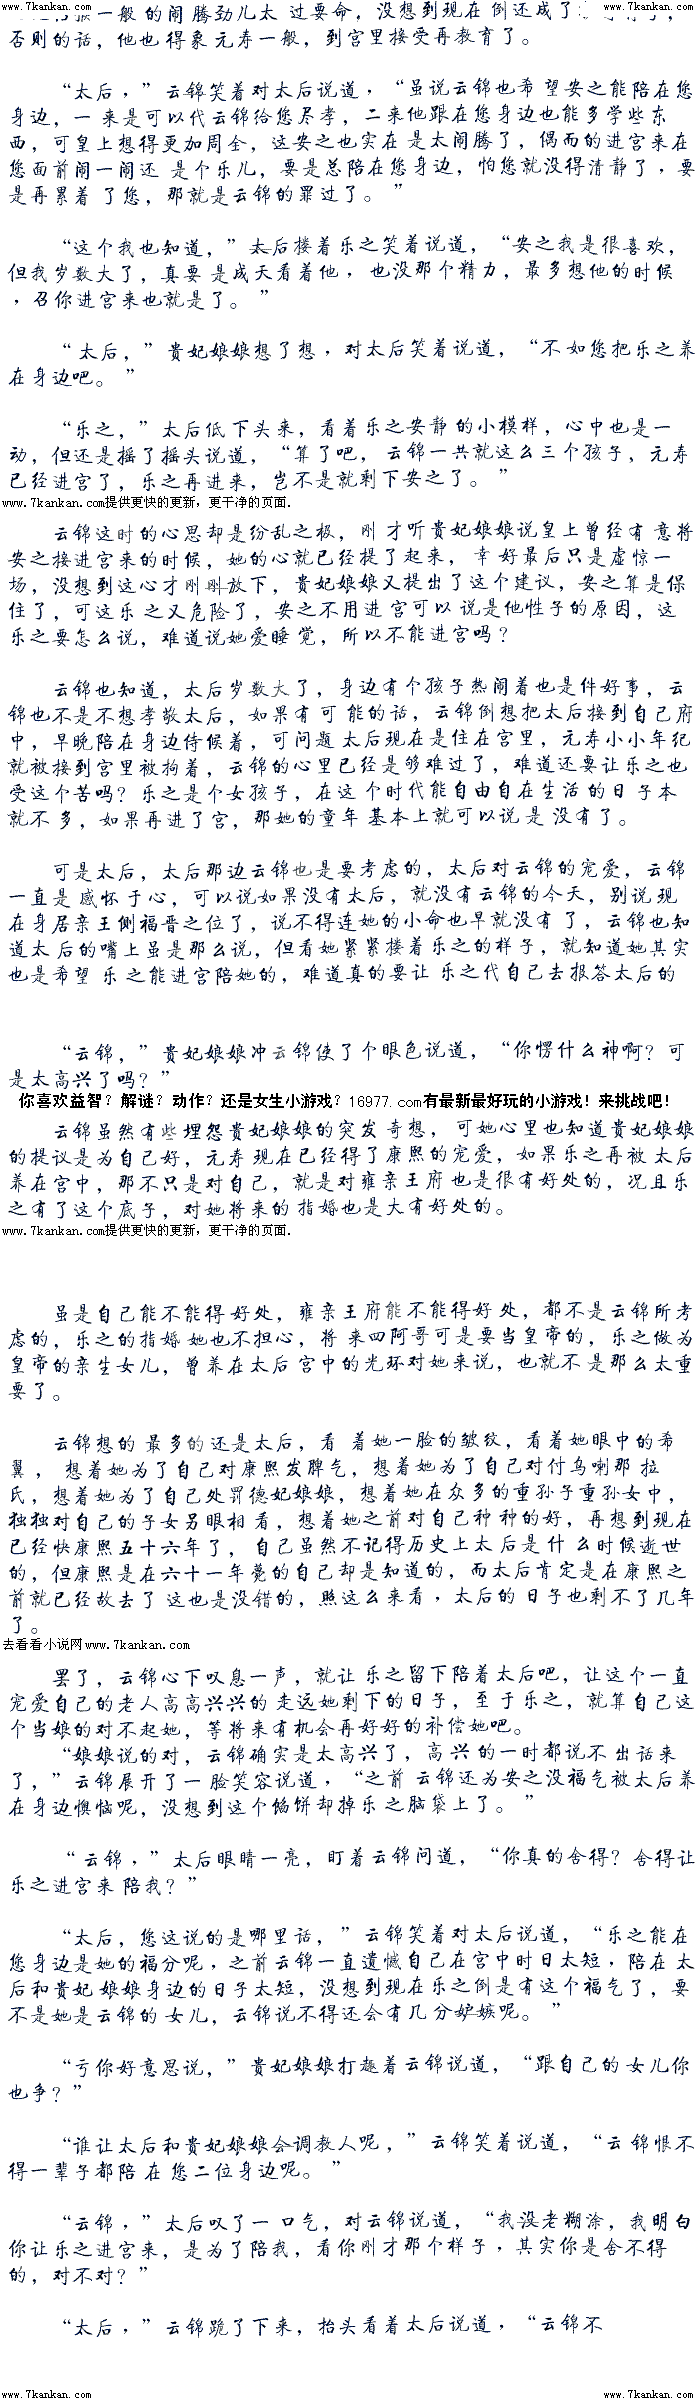 www.7kankan.com www.7kankan.com
一般的闹腾劲儿太过要命，没想到现在倒还成了
否则的话，他也得象元寿一般，到宫里接受再教育了。
“太后，”云锦笑着对太后说道，“虽说云锦也希望安之能陪在您
身边，一来是可以代云锦给您尽孝，二来他跟在您身边也能多学些东
西，可皇上想得更加周全，这安之也实在是太闹腾了，偶而的进宫来在
您面前闹一闹还是个乐儿，要是总陪在您身边，怕您就没得清静了，要
是再累着了您，那就是云锦的罪过了。”
“这个我也知道，”太后搂着乐之笑着说道，“安之我是很喜欢，
但我岁数大了，真要是成天看着他，也没那个精力，最多想他的时候
，召你进宫来也就是了。”
“太后，”贵妃娘娘想了想，对太后笑着说道，“不如您把乐之养
在身边吧。”
“乐之，”太后低下头来，看着乐之安静的小模样，心中也是一
动，但还是摇了摇头说道，“算了吧，云锦一共就这么三个孩子，元寿
已经进宫了，乐之再进来，岂不是就剩下安之了。”
www.7kankan.com提供更快的更新，更干净的页面.
云锦这时的心思却是纷乱之极，刚才听贵妃娘娘说皇上曾经有意将
安之接进宫来的时候，她的心就已经提了起来，幸好最后只是虚惊一
场，没想到这心才刚刚放下，贵妃娘娘又提出了这个建议，安之算是保
住了，可这乐之又危险了，安之不用进宫可以说是他性子的原因，这
乐之要怎么说，难道说她爱睡觉，所以不能进宫吗？
云锦也知道，太后岁数大了，身边有个孩子热闹着也是件好事，云
锦也不是不想孝敬太后，如果有可能的话，云锦倒想把太后接到自己府
中，早晚陪在身边侍候着，可问题太后现在是住在宫里，元寿小小年纪
就被接到宫里被拘着，云锦的心里已经是够难过了，难道还要让乐之也
受这个苦吗？乐之是个女孩子，在这个时代能自由自在生活的日子本
就不多，如果再进了宫，那她的童年基本上就可以说是没有了。
可是太后，太后那边云锦也是要考虑的，太后对云锦的宠爱，云锦
一直是感怀于心，可以说如果没有太后，就没有云锦的今天，别说现
在身居亲王侧福晋之位了，说不得连她的小命也早就没有了，云锦也知
道太后的嘴上虽是那么说，但看她紧紧搂着乐之的样子，就知道她其实
也是希望乐之能进宫陪她的，难道真的要让乐之代自己去报答太后的
“云锦，”贵妃娘娘冲云锦使了个眼色说道，“你愣什么神啊？可
是太高兴了吗？”
你喜欢益智？解谜？动作？还是女生小游戏？16977.com有最新最好玩的小游戏！来挑战吧！
云锦虽然有些埋怨贵妃娘娘的突发奇想，可她心里也知道贵妃娘娘
的提议是为自己好，元寿现在已经得了康熙的宠爱，如果乐之再被太后
养在宫中，那不只是对自己，就是对雍亲王府也是很有好处的，况且乐
之有了这个底子，对她将来的指婚也是大有好处的。
www.7kankan.com提供更快的更新，更干净的页面.
虽是自己能不能得好处，雍亲王府能不能得好处，都不是云锦所考
虑的，乐之的指婚她也不担心，将来四阿哥可是要当皇帝的，乐之做为
皇帝的亲生女儿，曾养在太后宫中的光环对她来说，也就不是那么太重
要了。
云锦想的最多的还是太后，看着她一脸的皱纹，看着她眼中的希
翼，想着她为了自己对康熙发脾气，想着她为了自己对付乌喇那拉
氏，想着她为了自己处罚德妃娘娘，想着她在众多的重孙子重孙女中，
独独对自己的子女另眼相看，想着她之前对自己种种的好，再想到现在
已经快康熙五十六年了，自己虽然不记得历史上太后是什么时候逝世
的，但康熙是在六十一年薨的自己却是知道的，而太后肯定是在康熙之
前就已经故去了这也是没错的，照这么来看，太后的日子也剩不了几年
了。
去看看小说网www.7kankan.com
罢了，云锦心下叹息一声，就让乐之留下陪着太后吧，让这个一直
宠爱自己的老人高高兴兴的走远她剩下的日子，至于乐之，就算自己这
个当娘的对不起她，等将来有机会再好好的补偿她吧。
“娘娘说的对，云锦确实是太高兴了，高兴的一时都说不出话来
了，”云锦展开了一脸笑容说道，“之前云锦还为安之没福气被太后养
在身边懊恼呢，没想到这个馅饼却掉乐之脑袋上了。”
“云锦，”太后眼睛一亮，盯着云锦问道，“你真的舍得？舍得让
乐之进宫来陪我？”
“太后，您这说的是哪里话，”云锦笑着对太后说道，“乐之能在
您身边是她的福分呢，之前云锦一直遗憾自己在宫中时日太短，陪在太
后和贵妃娘娘身边的日子太短，没想到现在乐之倒是有这个福气了，要
不是她是云锦的女儿，云锦说不得还会有几分妒嫉呢。”
“亏你好意思说，”贵妃娘娘打趣着云锦说道，“跟自己的女儿你
也争？”
“谁让太后和贵妃娘娘会调教人呢，”云锦笑着说道，“云锦恨不
得一辈子都陪在您二位身边呢。”
“云锦，”太后叹了一口气，对云锦说道，“我没老糊涂，我明白
你让乐之进宫来，是为了陪我，看你刚才那个样子，其实你是舍不得
的，对不对？”
“太后，”云锦跪了下来，抬头看着太后说道，“云锦不
www.7kankan.com www.7kankan.com